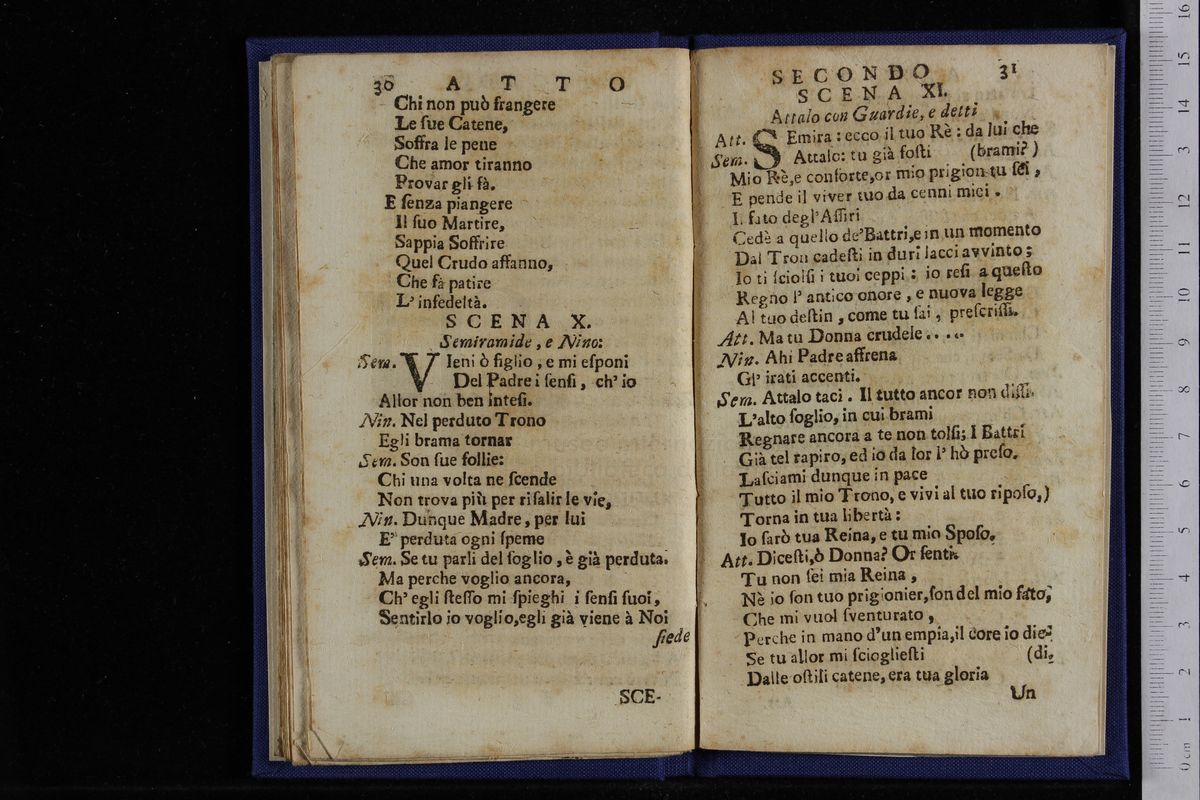 30 ATTO
Chi non può frangere
Le ſue Catene,
Soffra le pene
Che amor tiranno
Provar gli fà.
E ſenza piangere
Il ſuo Martire,
Sappia Soffrire
Quel Crudo affanno,
Che fà patire
L' infedeltà.
SCENA X.
Semiramide, e Nino:
Sem. VIeni ò figlio, e mi eſponi
Del Padre i ſenſi, ch' io
Allor non ben inteſi.
Nin. Nel perduto Trono
Egli brama tornar
Sem. Son ſue follie:
Chi una volta ne ſcende
Non trova più per riſalir le vie,
Nin. Dunque Madre, per lui
E' perduta ogni ſpeme
Sem. Se tu parli del ſoglio, è già perduta.
Ma perche voglio ancora,
Ch' egli ſteſſo mi ſpieghi i ſenſi ſuoi,
Sentirlo io voglio, egli già viene à Noi
ſiede
SCE-
SECONDO 31
SCENA XI.
Attalo con Guardie, e detti
Att. SEmira: ecco il tuo Rè: da lui che
Sem. Attalo: tu già foſti (brami?)
Mio Rè, e conſorte, or mio prigion tu ſei,
E pende il viver tuo da cenni miei.
I. fato degl' Aſſiri
Cedè a quello de' Battri, e in un momento
Dal Tron cadeſti in duri lacci avvinto;
Io ti ſciolſi i tuoi ceppi: io reſi a queſto
Regno l' antico onore, e nuova legge
Al tuo deſtin, come tu ſai, preſcriſſi.
Att. Ma tu Donna crudele.....
Nin. Ahi Padre affrena
Gl' irati accenti.
Sem. Attalo taci. Il tutto ancor non diſſi.
L'alto ſoglio, in cui brami
Regnare ancora a te non tolſi; I Battri
Già tel rapiro, ed io da lor l' hò preſo.
Laſciami dunque in pace
Tutto il mio Trono, e vivi al tuo ripoſo,)
Torna in tua libertà:
Io ſarò tua Reina, e tu mio Spoſo.
Att. Diceſti, ò Donna? Or ſenti.
Tu non ſei mia Reina,
Nè io ſon tuo prigionier, ſon del mio fato,
Che mi vuol ſventurato,
Perche in mano d'un empia, il core io die-
Se tu allor mi ſcioglieſti (di.
Dalle oſtili catene, era tua gloria
Un